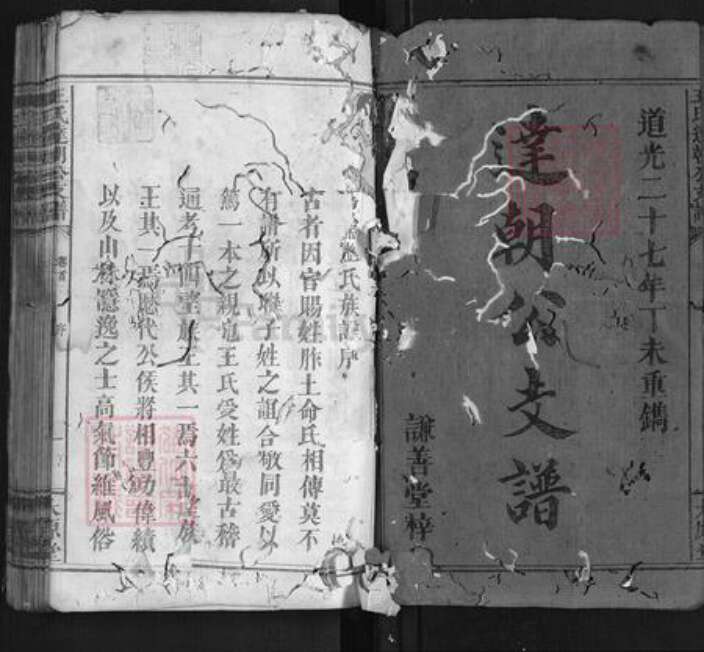 道光二十七年丁未重鐫
達朝公支譜
謙善堂梓
王氏族譜序
古者因官賜姓胙土命氏相傳莫不
有譜所以聯子姓之誼合敬同愛以
篤一本之親宛王氏受姓爲最古稽
通考十四望族王其一焉六十望族
王其一焉歷代公侯將相豐功偉績
以及山林隱逸之士高氣節維風俗
王氏達朝公支譜
卷首
序
太原堂